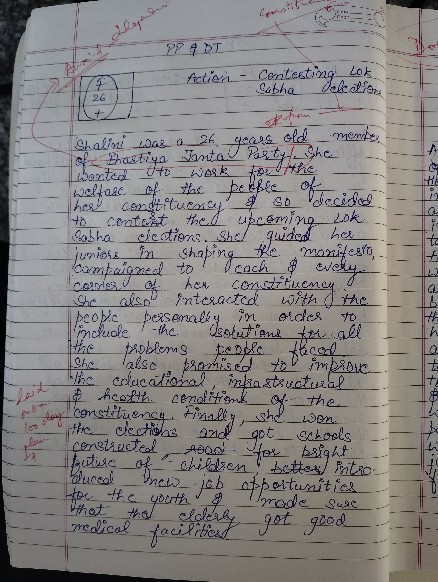 PP & DT
Action - Contesting Lok
Sabha elections
26
+
Shalini was a 26 years old member
of Bhartiya Janta Party. She
wanted to work for the
welfare of the people of
her constituency & so decided
to contest the upcoming Lok
Sabha elections. She guided her
juniors in shaping the manifesto,
campaigned to each & every
corner of her constituency
She also interacted with the
people personally in order to
include the solutions for all
the problems people faced
She also promised to improve
the educational, infrastructural
& health conditions of the
constituency. Finally, she won
the elections and got schools
constructed, road for bright
future of children better intro-
duced new job opportunities
for the youth & made sure
that the elderly got good
medical facilities